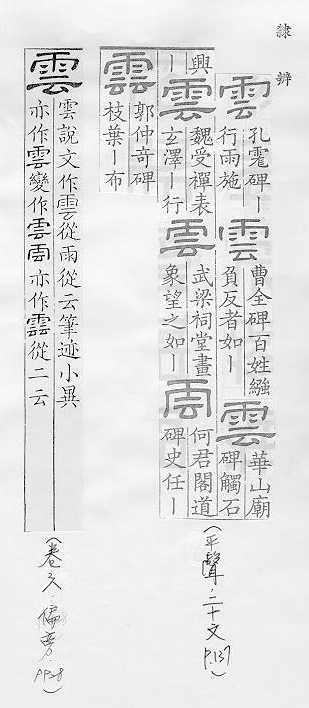 隸辨
雲 孔碑丨
行雨施
雲 曹全碑百姓繈
負反者如丨
雲 華山廟
碑觸石
興
丨
雲 魏受禪表
玄澤丨行
雲 武梁祠堂畫
象望之如丨
雲 何君閣道
碑史任丨
雲 郭仲奇碑
枝葉丨布
(平聲·二十文 P.137)
雲 雲說文作雲從雨從云筆迹小異
亦作雲變作雲 亦作 從二云
(卷六·偏旁·)